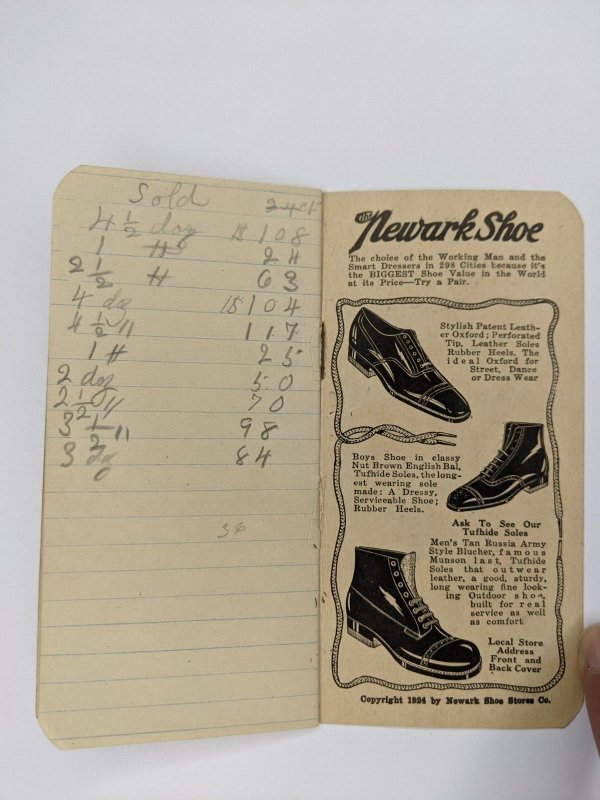 Sold 24ct
4 1/2 doz $ 1 08
1 " 24
2 1/2 " 63
4 dz $ 1 04
4 1/2 " 1 17
1 " 25
2 doz 50
2 1/2 " 70
3 1/2 " 98
3 dz 84
36
The Newark Shoe
The choice of the Working Man and the
Smart Dressers in 298 Cities because it's
the BIGGEST Shoe Value in the World
at its Price—Try a Pair.
Stylish Patent Leath-
er Oxford; Perforated
Tip, Leather Soles
Rubber Heels. The
ideal Oxford for
Street, Dance
or Dress Wear
Boys Shoe in classy
Nut Brown English Bal,
Tufhide Soles, the long-
est wearing sole
made; A Dressy,
Serviceable Shoe;
Rubber Heels.
Ask To See Our
Tufhide Soles
Men's Tan Russia Army
Style Blucher, famous
Munson last, Tufhide
Soles that outwear
leather, a good, sturdy,
long wearing fine look-
ing Outdoor shoe,
built for real
service as well
as comfort
Local Store
Address
Front and
Back Cover
Copyright 1924 by Newark Shoe Stores Co.